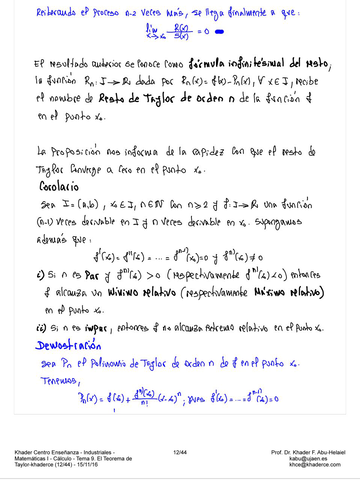 Reiterando el proceso n-2 veces más, se llega finalmente a que:
lim x→x₀ R(x)/S(x) = 0
El resultado anterior se conoce como fórmula infinitesimal del resto,
la función Rn: I→R dada por Rn(x)=f(x)-Pn(x), ∀ x∈I, recibe
el nombre de Resto de Taylor de orden n de la función f
en el punto x₀.
La proposición nos informa de la rapidez con que el resto de
Taylor converge a cero en el punto x₀.
Corolario
Sea I=(a,b), x₀∈I, n∈N con n≥2 y f: I→R una función
(n-1) veces derivable en I y n veces derivable en x₀. Supongamos
además que:
f'(x₀)=f''(x₀)=...=f^(n-1)(x₀)=0 y f^(n)(x₀)≠0
i) Si n es Par y f^(n)(x₀)>0 (respectivamente f^(n)(x₀)<0) entonces
f alcanza un Mínimo relativo (respectivamente Máximo relativo)
en el punto x₀.
ii) Si n es impar, entonces f no alcanza extremo relativo en el punto x₀.
Demostración
Sea Pn el polinomio de Taylor de orden n de f en el punto x₀.
Tenemos,
Pn(x)=f(x₀)+f^(n)(x₀)/n! (x-x₀)^n; pues f'(x₀)=...=f^(n-1)(x₀)=0
Khader Centro Enseñanza - Industriales - 12/44 Prof. Dr. Khader F. Abu-Helaiel
Matemáticas I - Cálculo - Tema 9. El Teorema de kabu@ujaen.es
Taylor-khaderce (12/44) - 15/11/16 khce@khaderce.com